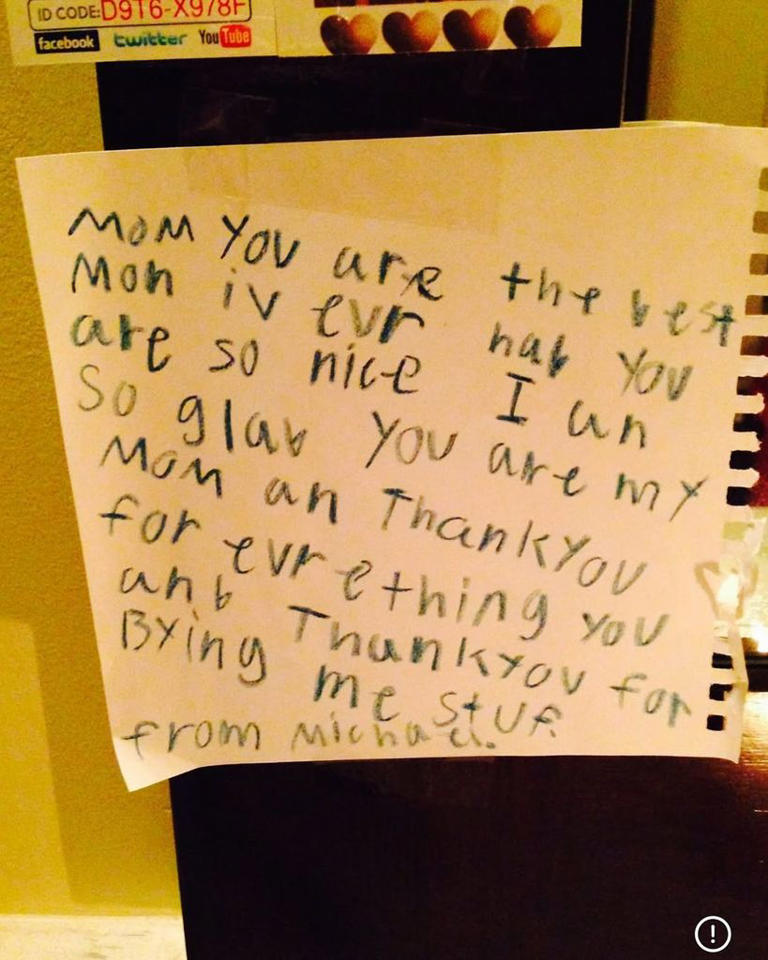 ID CODE:D9T6-X978F
facebook twitter YouTube
Mom You are the best
Mon iv evr hab You
are so nice I an
So glab You are my
Mom an Thankyou
for evrething you
anb Thankyou for
Bying me stuf.
from Michael.